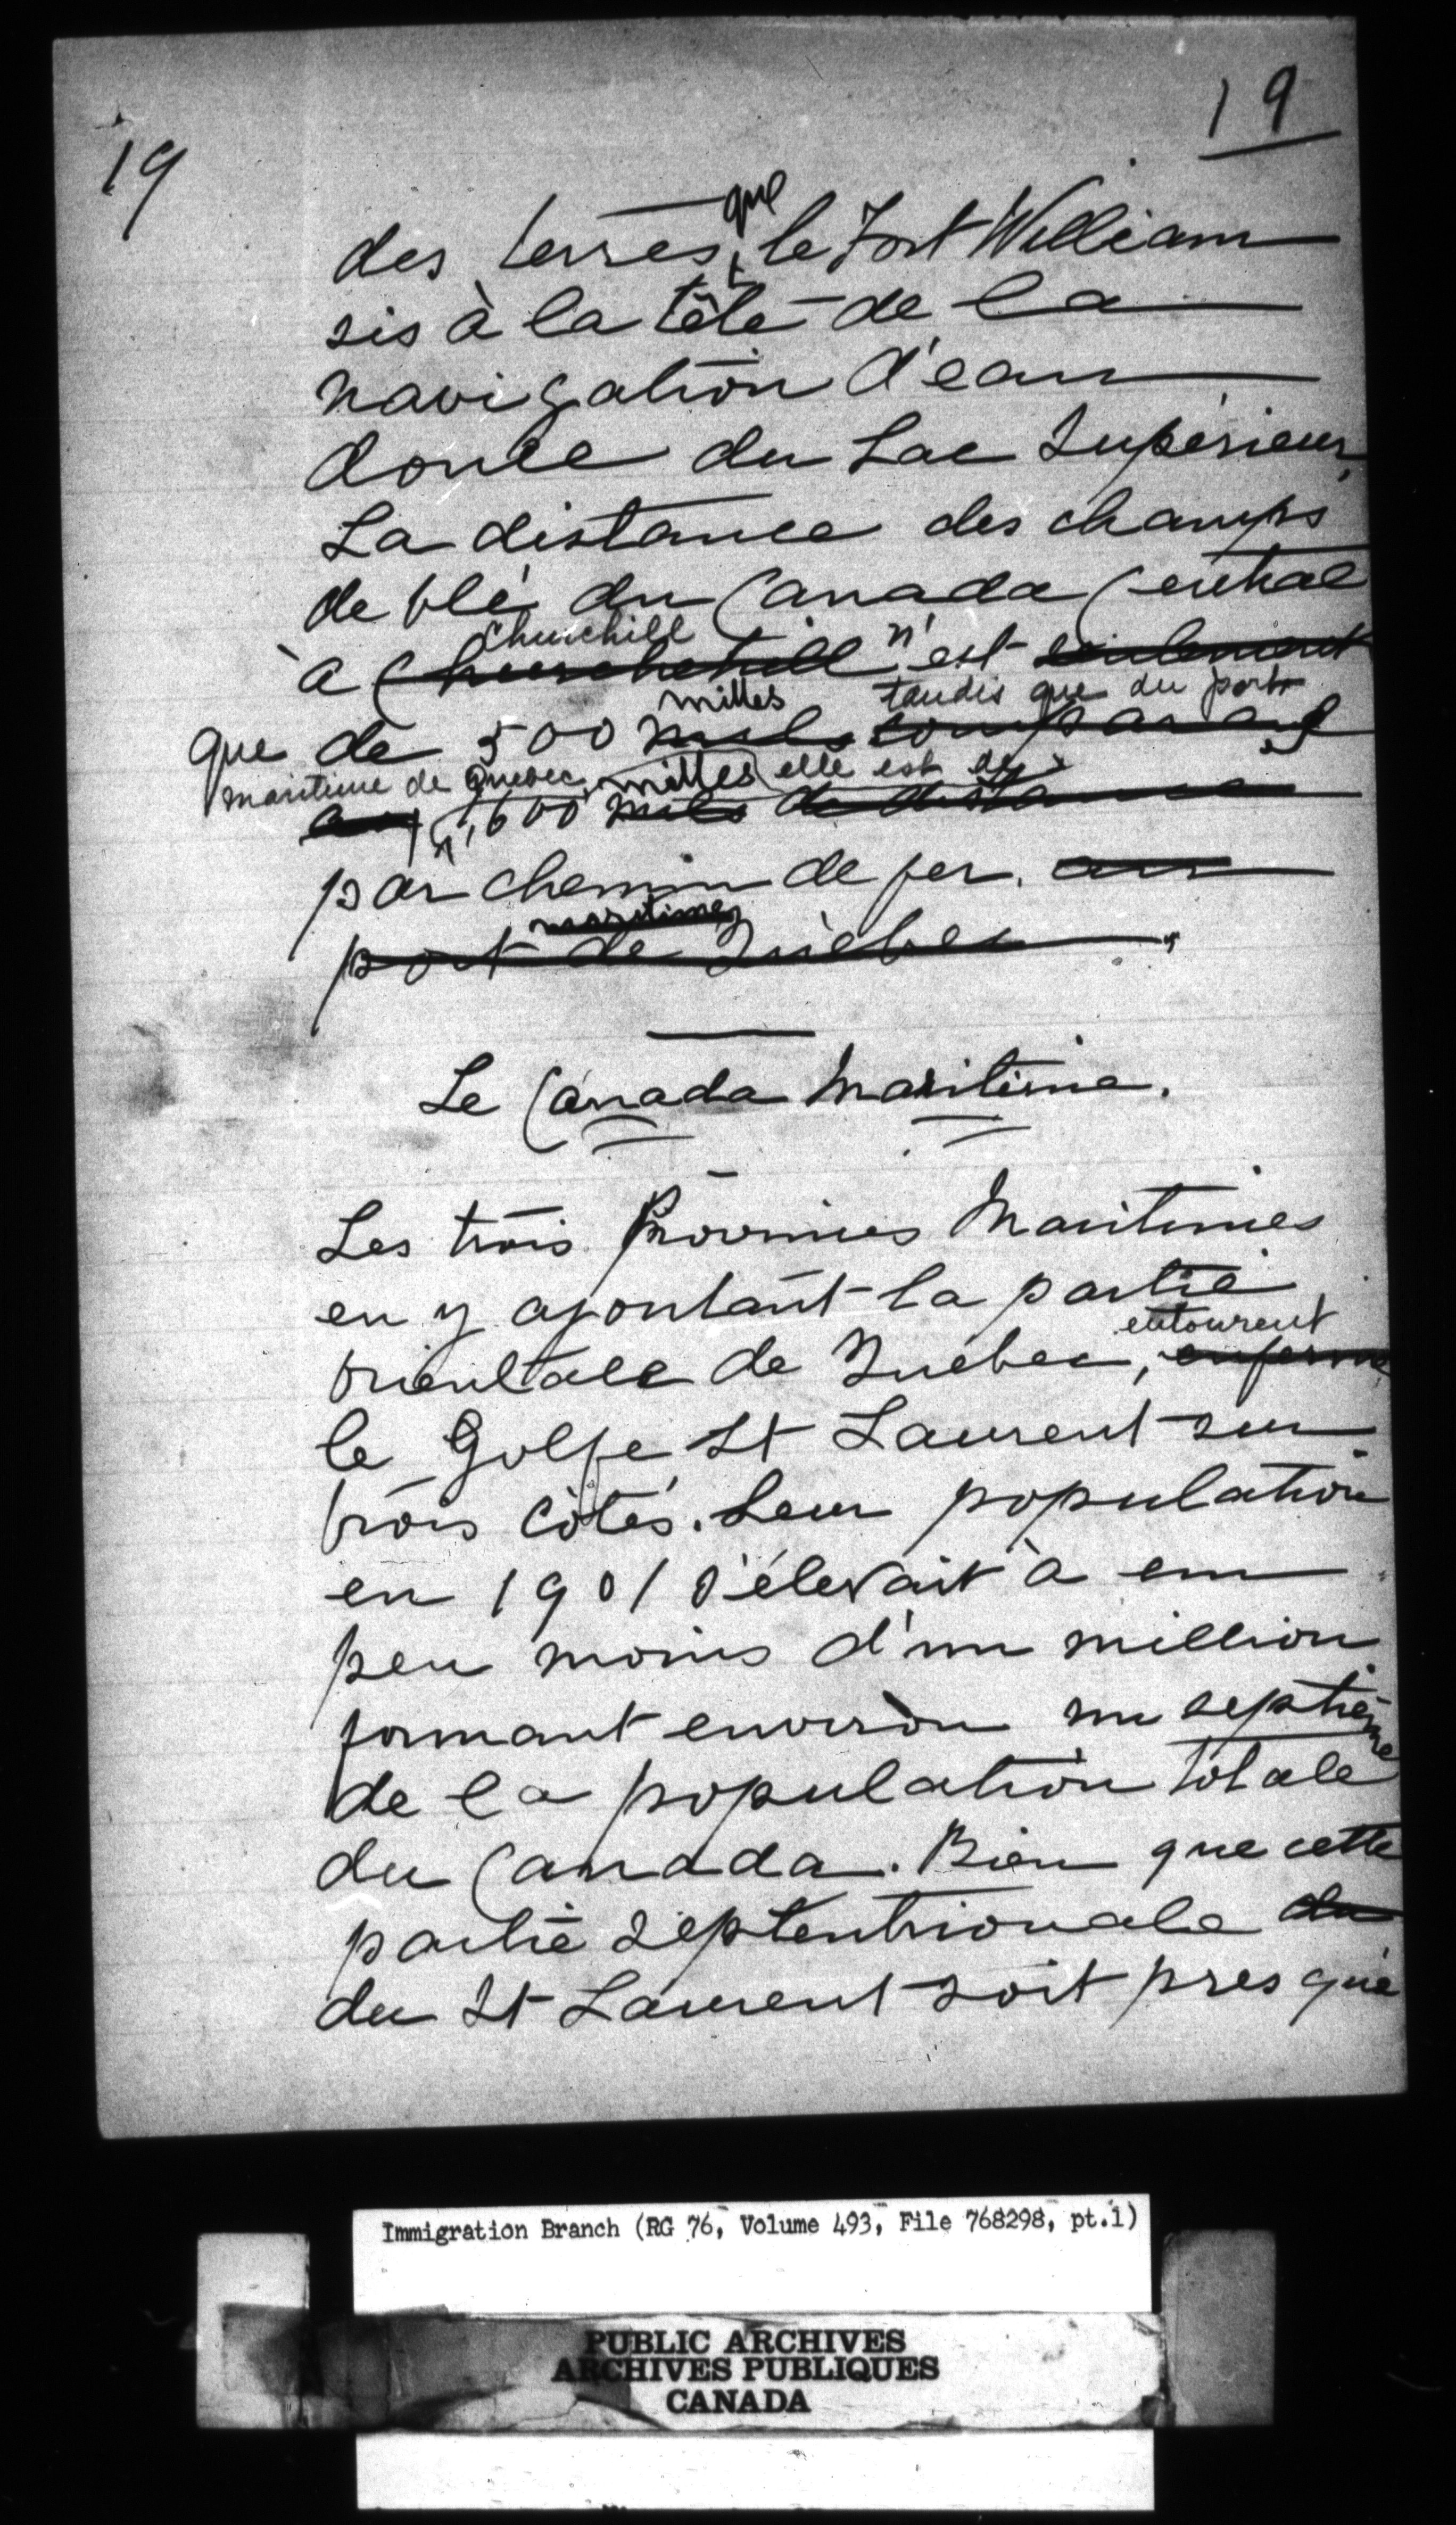 19
19
des terres que le Fort William
sis à la tête de la
navigation d'eau
douce du Lac Supérieur.
La distance des champs
de blé du Canada Central
Churchill
à Churchehill n'est seulement
milles tandis que du port
que de 500 mils comparant
maritime de Quebec milles elle est de
au 1,600 mils de distance
par chemin de fer. au
maritime
port de Québec.
Le Canada Maritime.
Les trois Provinces Maritimes
en y ajoutant la partie
entourent
orientale de Québec, enferme
le Golfe St Laurent sur
trois côtés. Leur population
en 1901 s'élevait à un
peu moins d'un million
formant environ un septième
de la population totale
du Canada. Bien que cette
partie septentrionale du
du St Laurent soit presque
Immigration Branch (RG 76, Volume 493, File 768298, pt.1)
PUBLIC ARCHIVES
ARCHIVES PUBLIQUES
CANADA